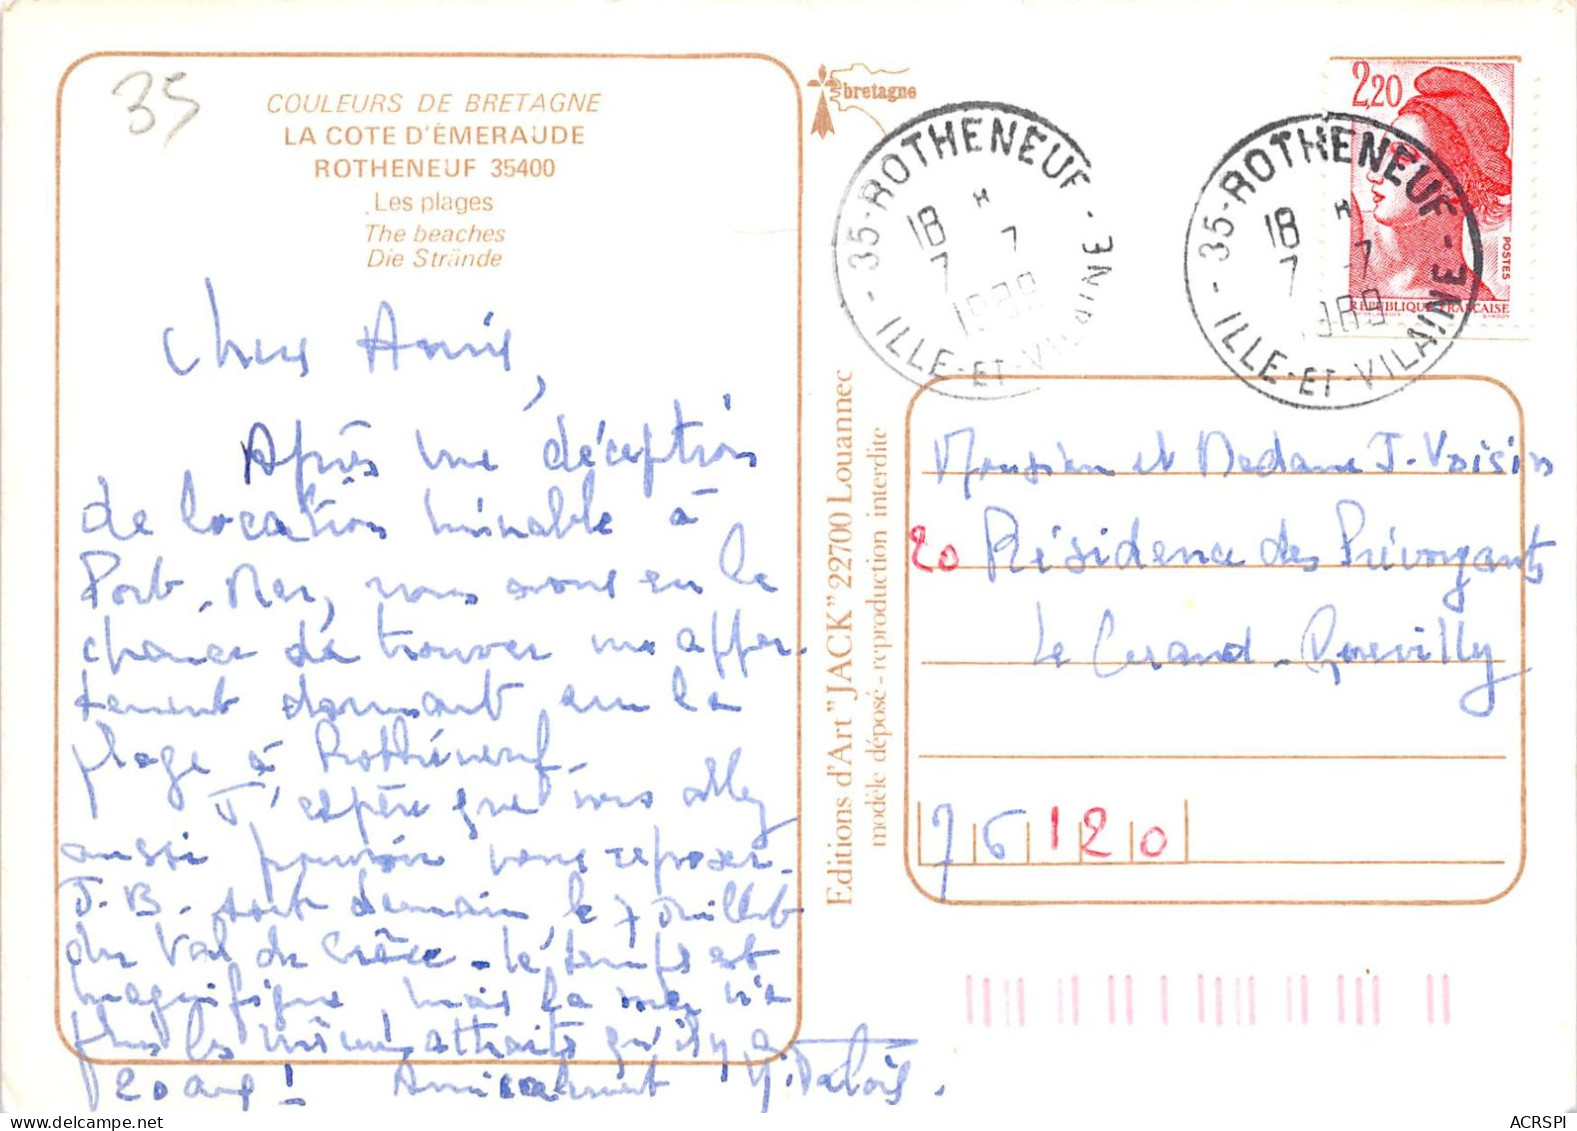 35
COULEURS DE BRETAGNE
LA COTE D'ÉMERAUDE
ROTHENEUF 35400
Les plages
The beaches
Die Strände
Chers Amis,
Après une déception
de location minable à
Port-Mer, nous avons eu la
chance de trouver un appar-
tement donnant sur la
plage à Rothéneuf.
J'espère que vous allez
aussi pouvoir vous reposer.
J.B. sort demain le 7 Juillet
du Val de Grâce - le temps est
magnifique, mais la mer n'a
plus les mêmes attraits qu'il y a
20 ans ! Amicalement
bretagne
35-ROTHENEUF
18 H
7 - 7
1989
ILLE-ET-VILAINE
2,20
35-ROTHENEUF
18 H
7 - 7
1989
ILLE-ET-VILAINE
POSTES
REPUBLIQUE FRANCAISE
Editions d'Art "JACK" 22700 Louannec
modèle déposé - reproduction interdite
Monsieur et Madame J. Voisin
20 Résidence des Prévoyants
Le Grand-Quevilly
76120
ACRSPI